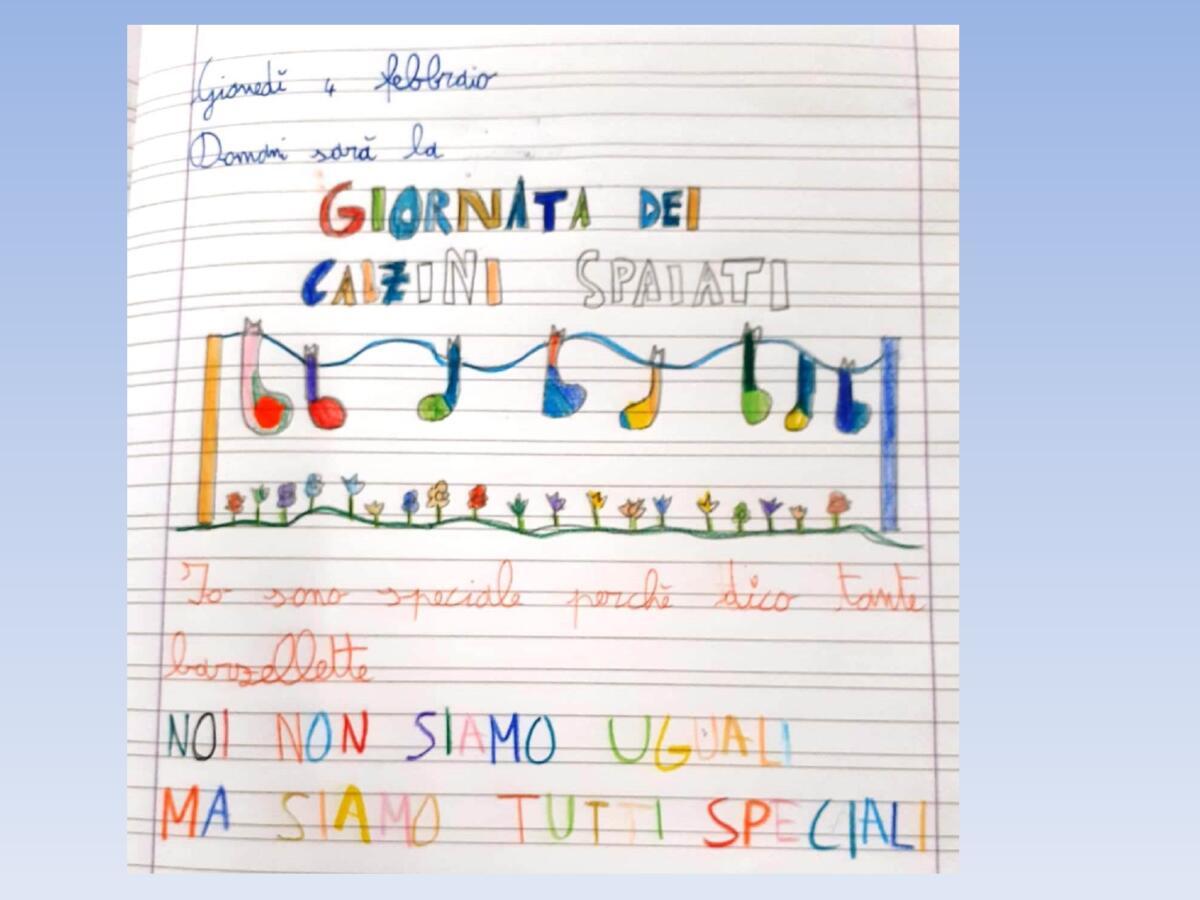 Giovedì 4 febbraio
Domani sarà la
GIORNATA DEI
CALZINI SPAIATI
Io sono speciale perchè dico tante
barzellette
NOI NON SIAMO UGUALI
MA SIAMO TUTTI SPECIALI